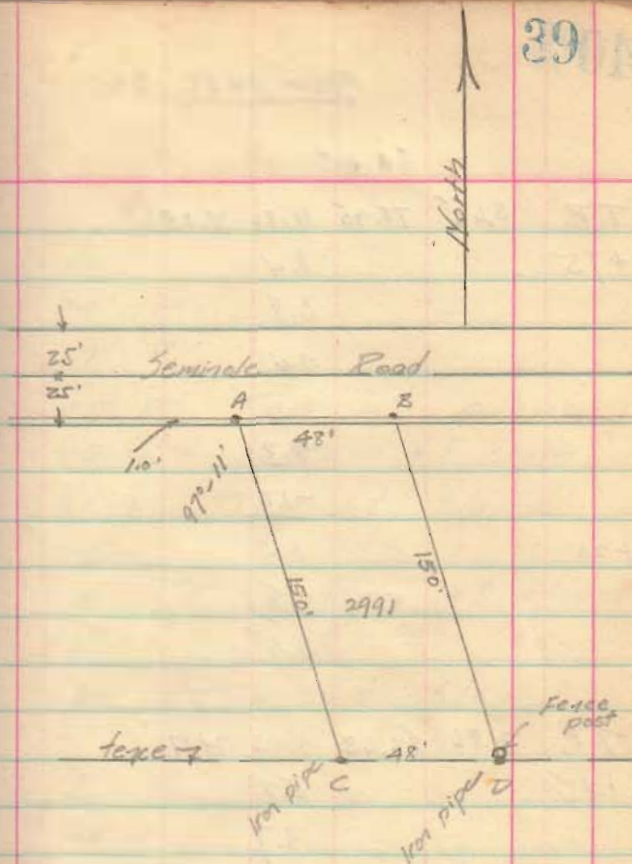 39
North
25'
25'
Seminole Road
A
B
1.0'
48'
97°-11'
150'
150'
2991
Fence
post
fence
48'
C
D
Iron pipe
Iron pipe